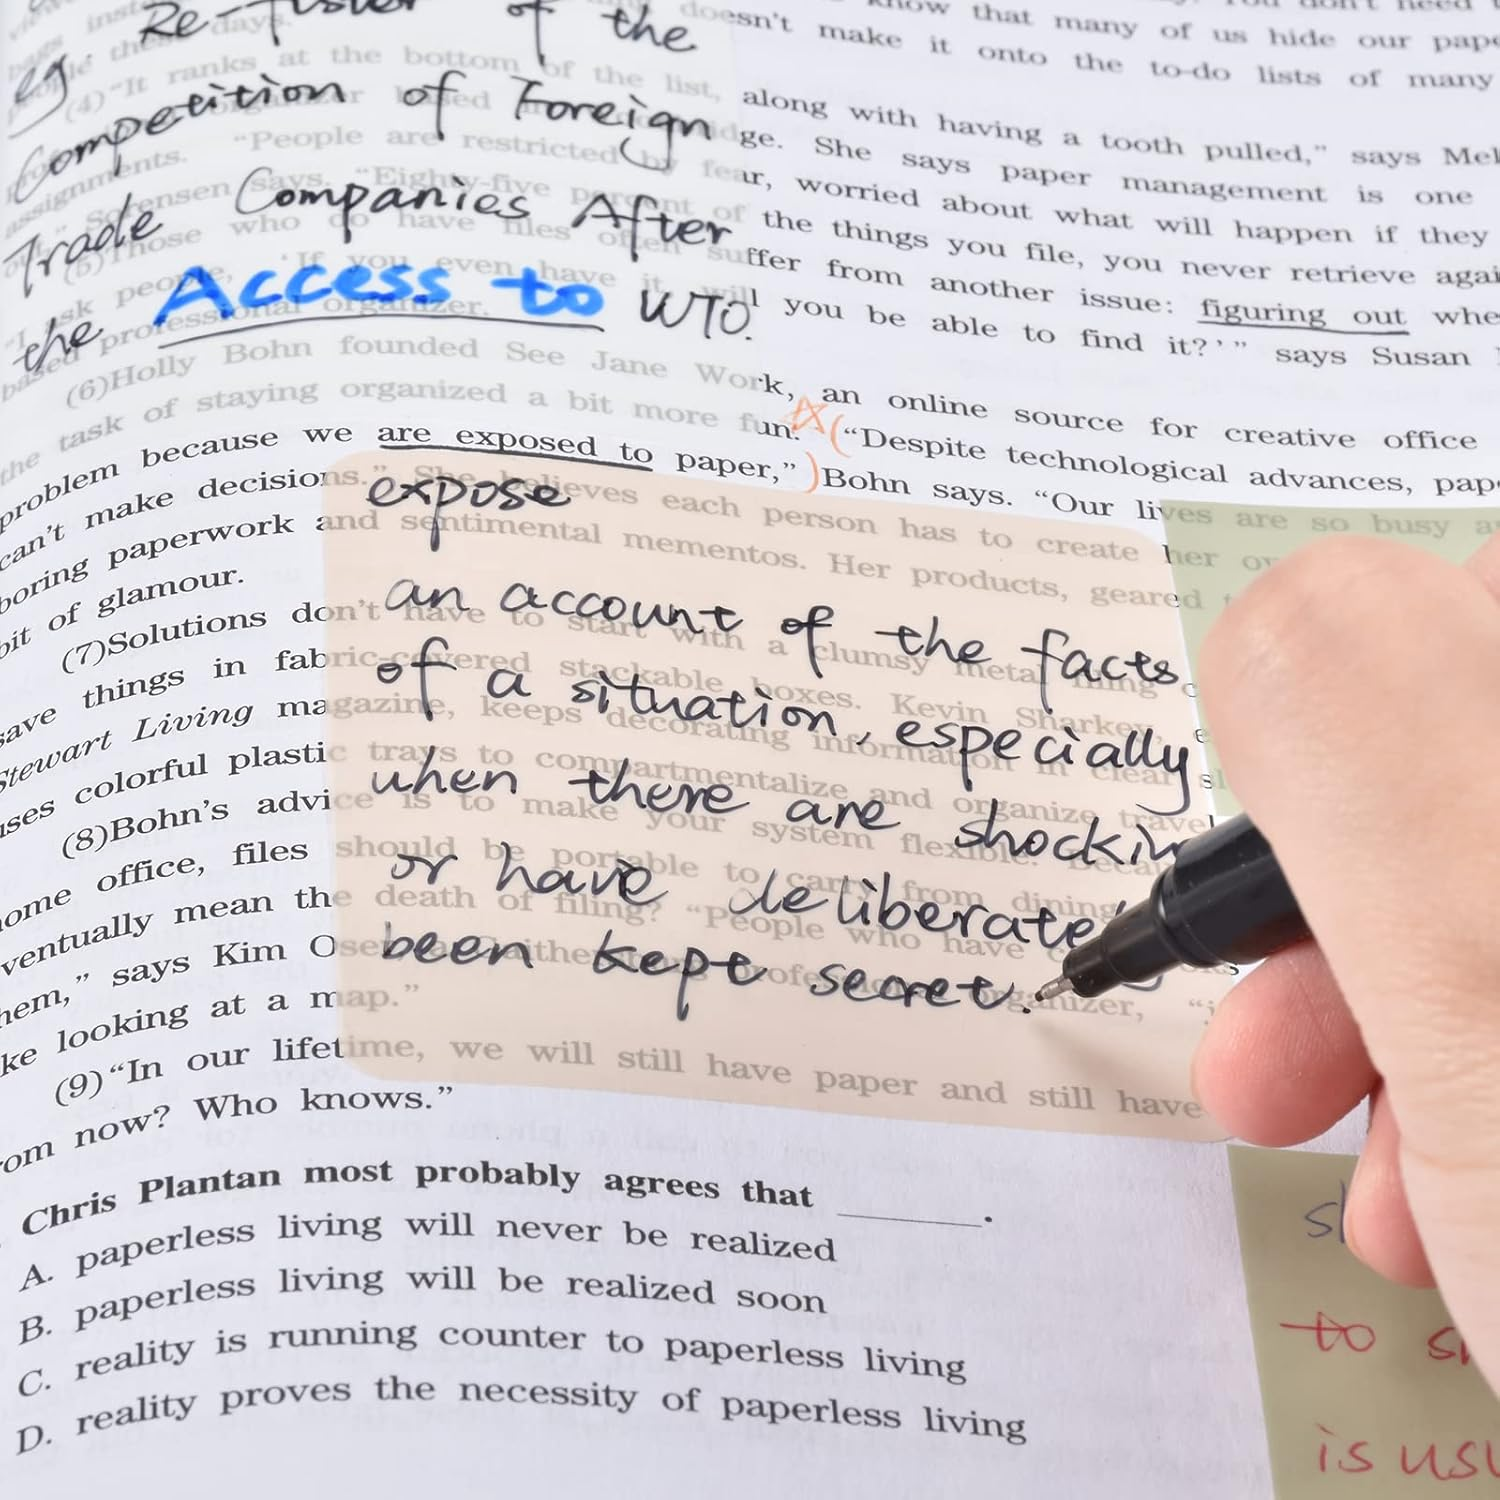 know that many of us hide our
doesn't make it onto the to-do lists of many
(4) "It ranks at the bottom of the list, along with having a tooth pulled," says
ge. She says paper management is one
"People are restricted by fear, worried about what will happen if they
assignments.
Sorensen says. "Eighty-five percent of the things you file, you never retrieve
(5)Those who do have files often suffer from another issue: figuring out
"I ask people, 'If you even have it, will you be able to find it?'" says Susan
based professional organizer.
eg Re- of the
Competition of Foreign
Trade Companies After
the Access to WTO.
(6)Holly Bohn founded See Jane Work, an online source for creative office
the task of staying organized a bit more fun. ("Despite technological advances,
problem because we are exposed to paper,") Bohn says. "Our lives are so busy
can't make decisions." She believes each person has to create her
boring paperwork and sentimental mementos. Her products, geared
bit of glamour.
(7)Solutions don't have to start with a clumsy metal filing
save things in fabric-covered stackable boxes. Kevin Sharkey,
Stewart Living magazine, keeps decorating information in clear
uses colorful plastic trays to compartmentalize and organize travel
(8)Bohn's advice is to make your system flexible.
home office, files should be portable to carry from dining
eventually mean the death of filing? "People who have
them," says Kim professional organizer,
like looking at a map."
(9)"In our lifetime, we will still have paper and still have
from now? Who knows."
expose
an account of the facts
of a situation, especially
when there are
or have
been kept secret.
Chris Plantan most probably agrees that ______.
A. paperless living will never be realized
B. paperless living will be realized soon
C. reality is running counter to paperless living
D. reality proves the necessity of paperless living
to
is